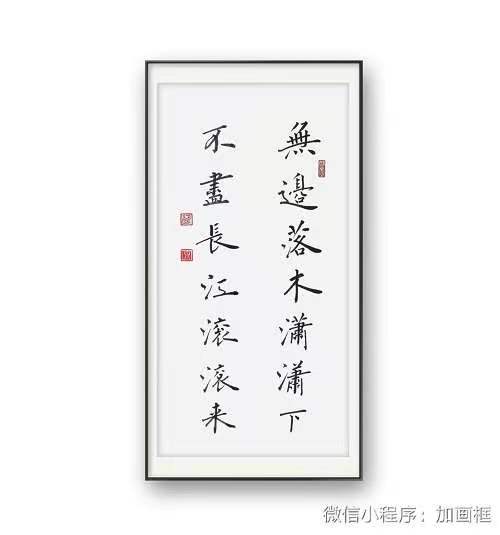 無邊落木瀟瀟下
不盡長江滚滚来
微信小程序：加画框